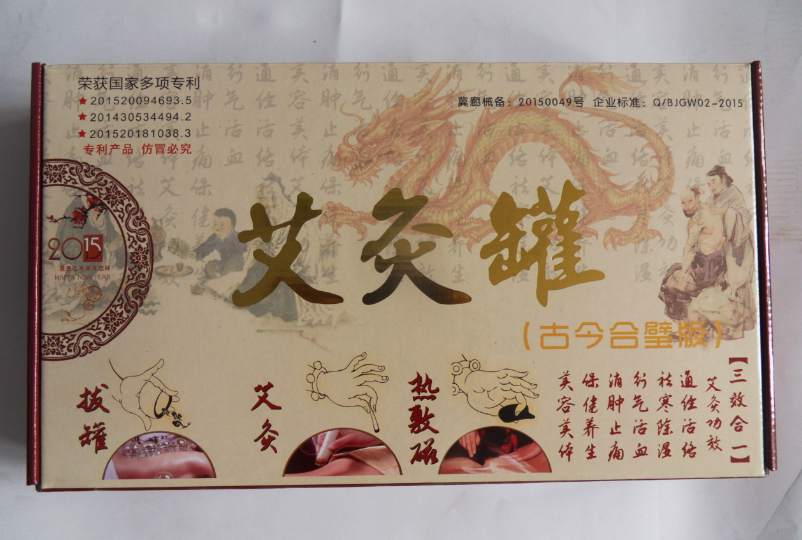 荣获国家多项专利
★201520094693.5
★201430534494.2
★201520181038.3
专利产品 仿冒必究
冀廊械备：20150049号 企业标准：Q/BJGW02-2015
2015
HAPPY NEW YEAR
艾灸罐
（古今合璧版）
拔罐
艾灸
热敷磁
【三效合一】
艾灸功效
通经活络
祛寒除湿
行气活血
消肿止痛
保健养生
美容美体